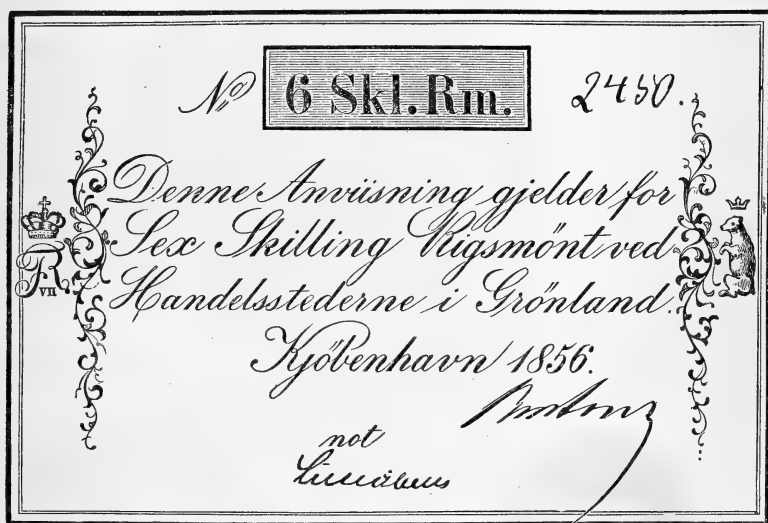 No 6 Skl. Rm. 2450.
Denne Anviisning gjelder for
Sex Skilling Rigsmönt ved
Handelsstederne i Grönland.
F VII.
Kjöbenhavn 1856.
not